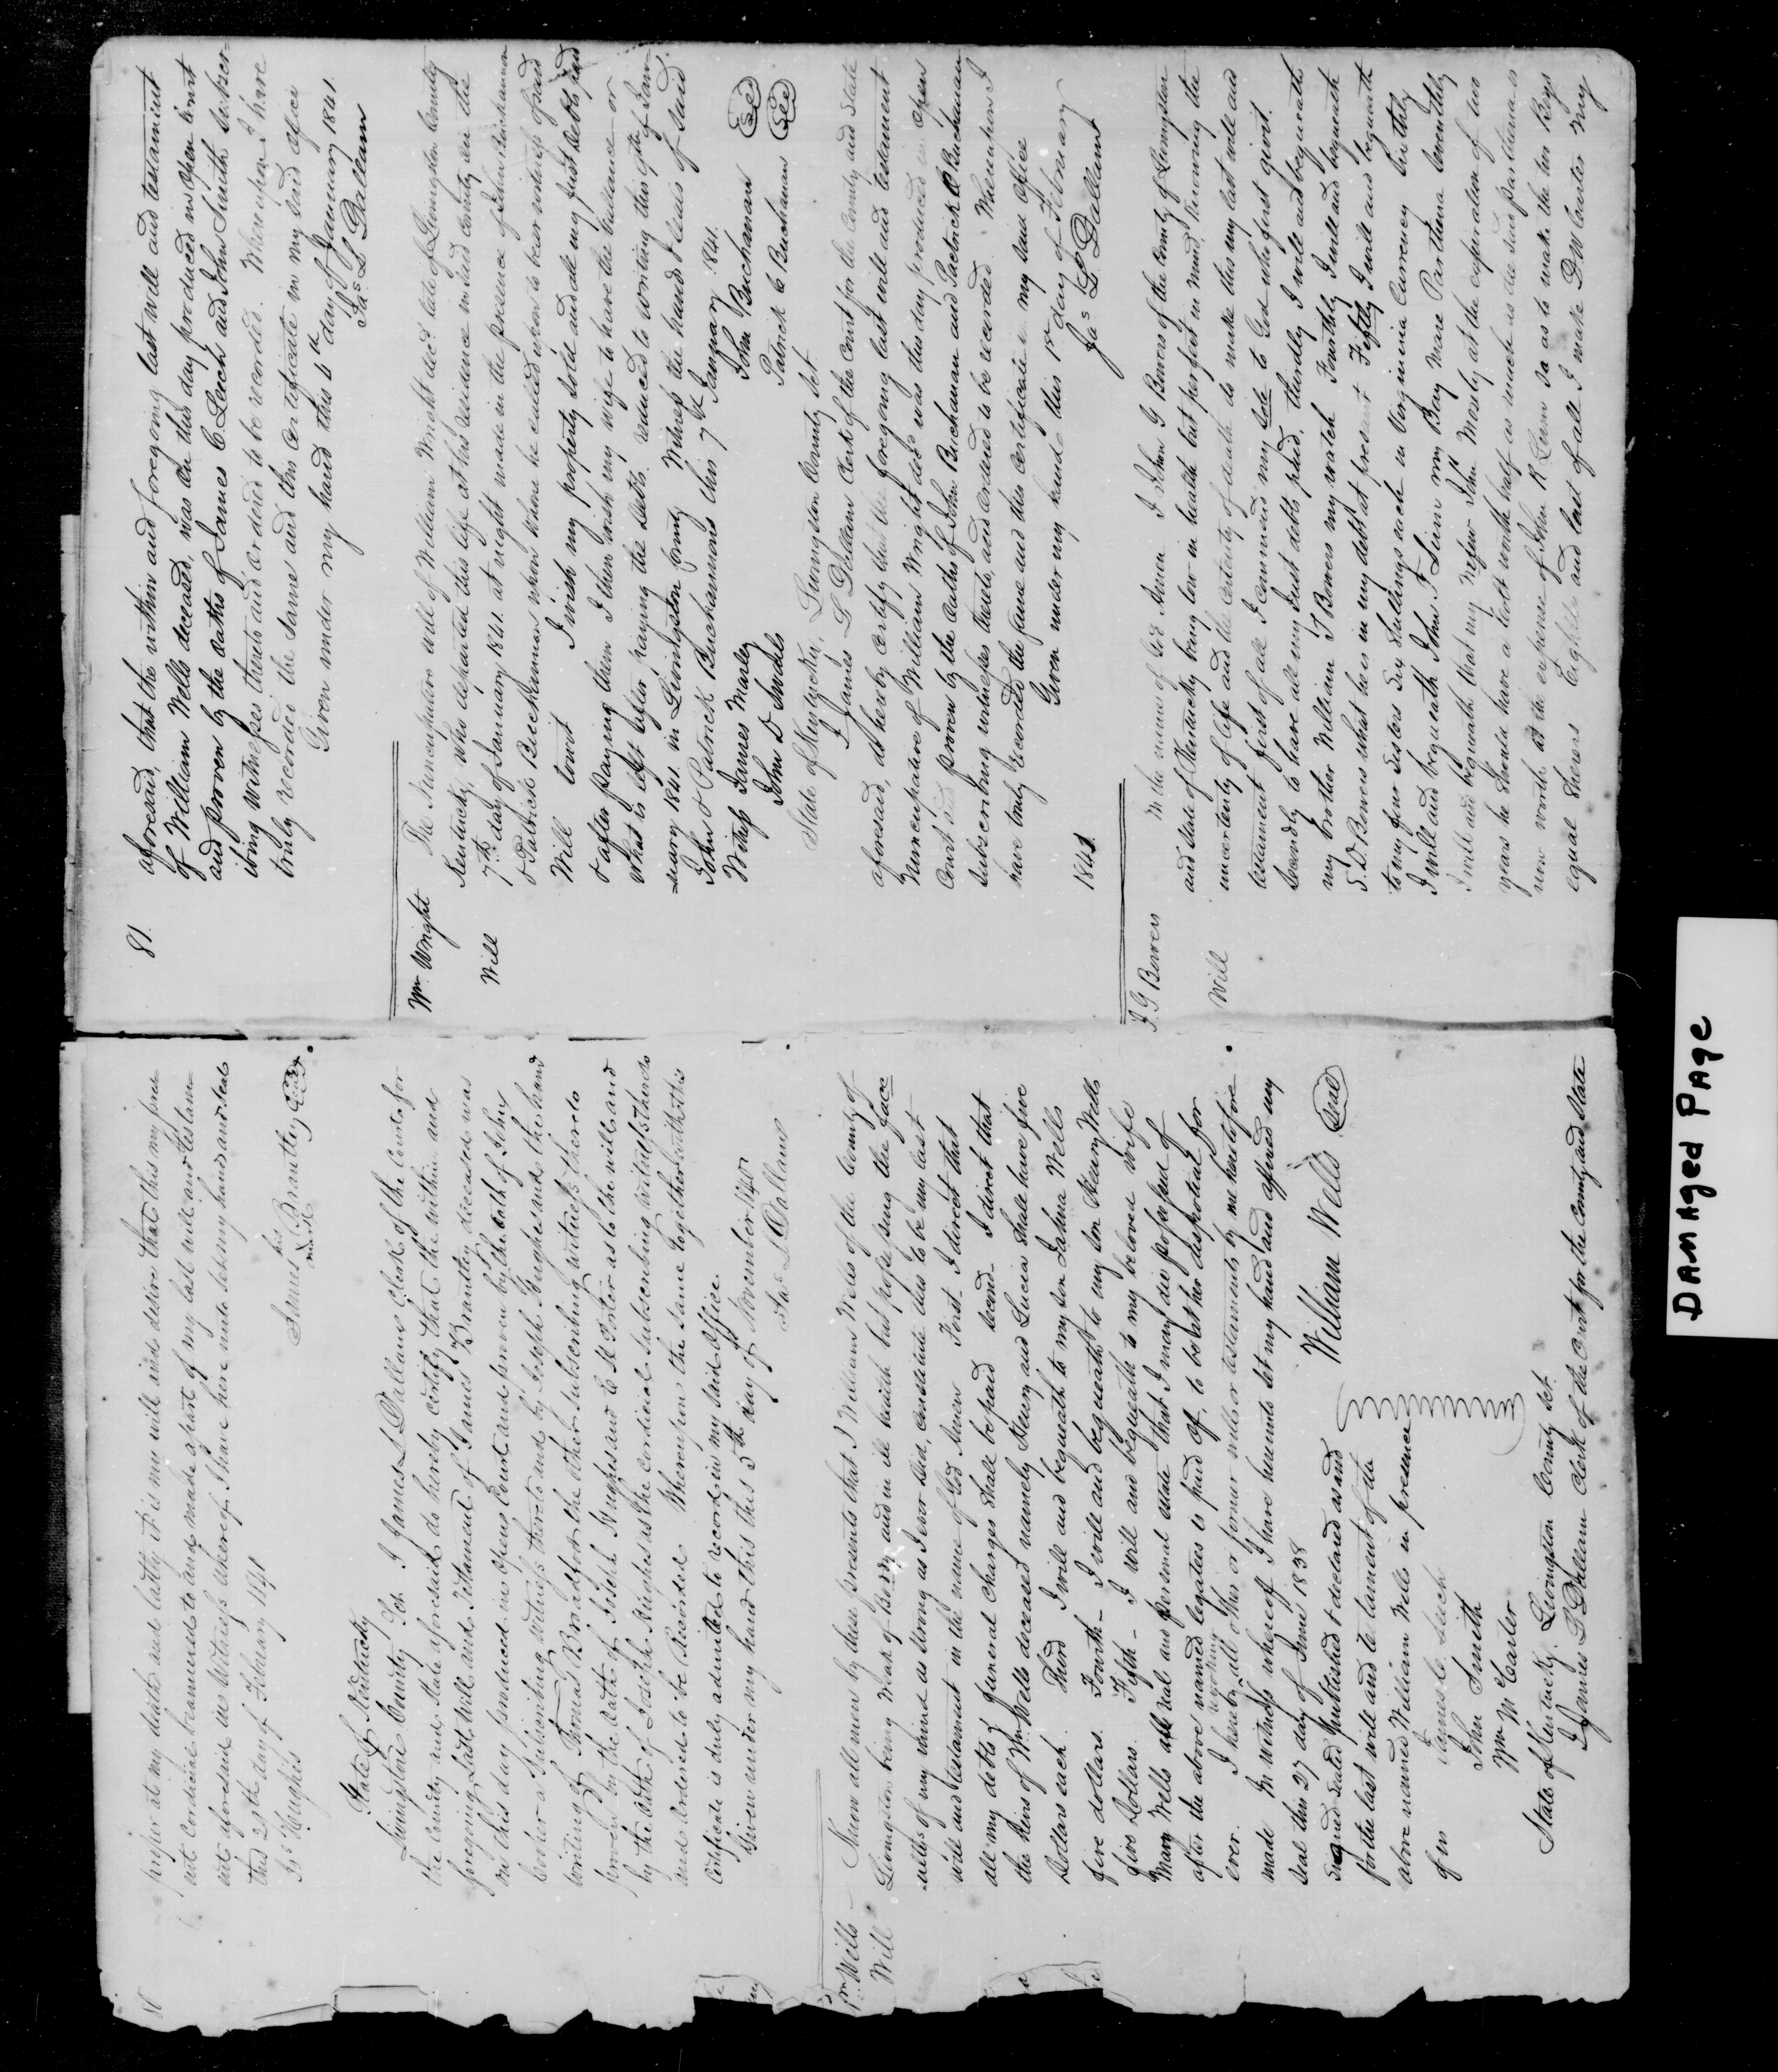 80
proper at my death and lastly it is my will and desire that this my pres
ent Cordicial beannexed to and made a part of my last will and testam
ent aforesaid in Witness whereof I have here unto set my hand and seal
this 27th day of February 1841
James his X mark Brantley Seal
Jos Hughes
State of Kentucky
Livingston County Sct. I James L Dallam Clerk of the Court for
the County and State aforesaid do hereby certify that the within and
foregoing Last Will and Testament of James Brantley deceased was
on this day produced in Open Court and proven by the oath of John
a Subscribing witness thereto and by Joseph Hughes and the hand
writing of Thomas Bradford the other subscribing witness thereto
proven by the oath of Joseph Hughes and as to the will and
by the oath of Joseph Hughes as the Cordicial subscribing witness thereto
and Ordered to be Recorded Whereupon the same together with this
Certificate is duly admitted to record in my said Office.
Given under my hand this 5th day of November 1840
Jas L Dallam
Wm Wells
Will
Know all men by these presents that I William Wells of the County of
Livingston being weak of Body and in ill health but possessing the face
ulties of my mind as strong as I ever did, constitute this to be my last
will and testament in the name of God Amen First I direct that
all my debts & funeral Charges shall be paid second I direct that
the heirs of Wm Wells deceased namely Henry and Lucia shall have five
Dollars each Third I will and bequeath to my son Wells
five dollars. Fourth I will and bequeath to my son Henry Wells
five dollars. Fifth I will and bequeath to my beloved wife
Mary Wells all real and personal estate that I may die possessed of
after the above named legatees is paid of, to be at her disposial for
ever. I hereby revoking all other or former wills or testaments by me heretofore
made In witness whereof I have hereunto set my hand and affixed my
seal this 27 day of June 1838
William Wells Seal
Signed sealed published & declared as and
for the last will and testament of the
above named William Wells in presence
of us
James C Leech
John Smith
Wm M Carter
State of Kentucky Livingston County Sct.
I James L Dallam Clerk of the Court for the County and State
81.
aforesaid, that the within and foregoing last will and testament
of William Wells deceased, was on this day produced in open court
and proven by the oaths of James C. Leech and John Smith subscr
ibing witnesses thereto and ordered to be recorded. Whereupon I have
truly recorded the same and this certificate in my said office
Given under my hand this 4th day of January 1841.
Jas L Dallam
Wm Wright
Will
The Nuncupative will of William Wright decd late of Livingston County
Kentucky, who departed this life at his residence in said County on the
7th day of January 1841. at night made in the presence of John Buchanan
& Patrick Buchanan whom where he called upon to bear witness of said
Will towit I wish my property sold and all my just debts paid
& after paying them I then wish my wife to have the ballance or
what is left after paying the debts. reduced to writing this 9th of Jan
uary 1841. in Livingston County Witness the hands & seals of said
John & Patrick Buchanans this 7th January 1841.
Witness James Marley John Buchanan Seal
John D Patrick C Buchanan Seal
State of Kentucky, Livingston County Sct.
I James L Dallam Clerk of the Court for the County and State
aforesaid, do hereby certify that the foregoing last will and testament
Nuncupative of William Wright decd was this day produced in open
Court and proven by the oaths of John Buchanan and Patrick C Buchanan
subscribing witnesses thereto, and ordered to be recorded. Whereupon I
have truly recorded the same and this certificate in my said Office
Given under my hand this 1st day of February
1841. Jas L Dallam
J. G. Bowers
Will
In the name of God Amen I John G Bowers of the County of Livingston
and State of Kentucky being low in health but perfect in mind, knowing the
uncertenty of life and the certenty of death do make this my last will and
testament first of all I commend my Sole to God who first givent.
Secondly to have all my Just debts paid, thirdly I will and bequeath
my brother William T Bowers my watch Fourthly I will and bequeath
S. D Bowers what he is in my debt at present Fifthly I will and bequeath
to my four Sisters Six Shillings each in Virginia Currency Sixthly
I will and bequeath John F Linn my Bay Mare Parthena Seventhly
I will and bequeath that my Nefew John Mosely at the expiration of two
years he should have a Colt worth half as much as the said parthena is
now worth at the expense of John R Linn so as to make the two Boys
equal Shears Eighth and last of all I make D. W Carter my
DAMAged PAge